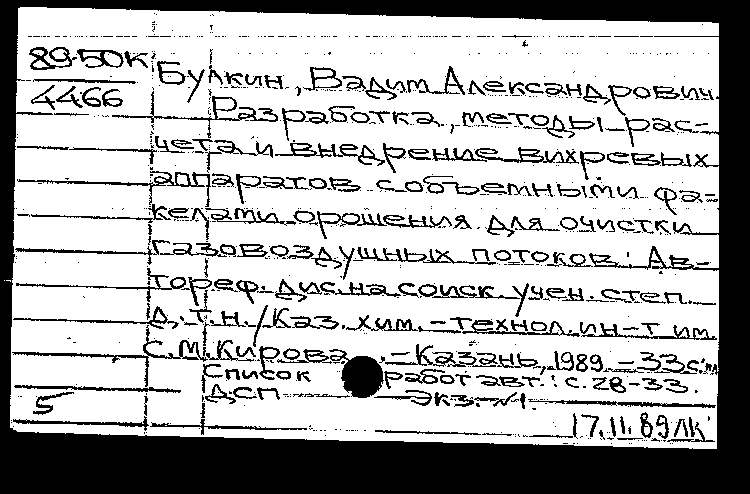 89-50К
4466
Булкин, Вадим Александрович.
Разработка, методы рас-
чета и внедрение вихревых
аппаратов с объемными фа-
келами орошения для очистки
газовоздушных потоков: Ав-
тореф. дис. на соиск. учен. степ.
д. т. н. / Каз. хим. -технол. ин-т им.
С. М. Кирова. - Казань, 1989. - 33с.
Список работ авт.: с. 28-33.
ДСП Экз. №1.
5
17.11.89